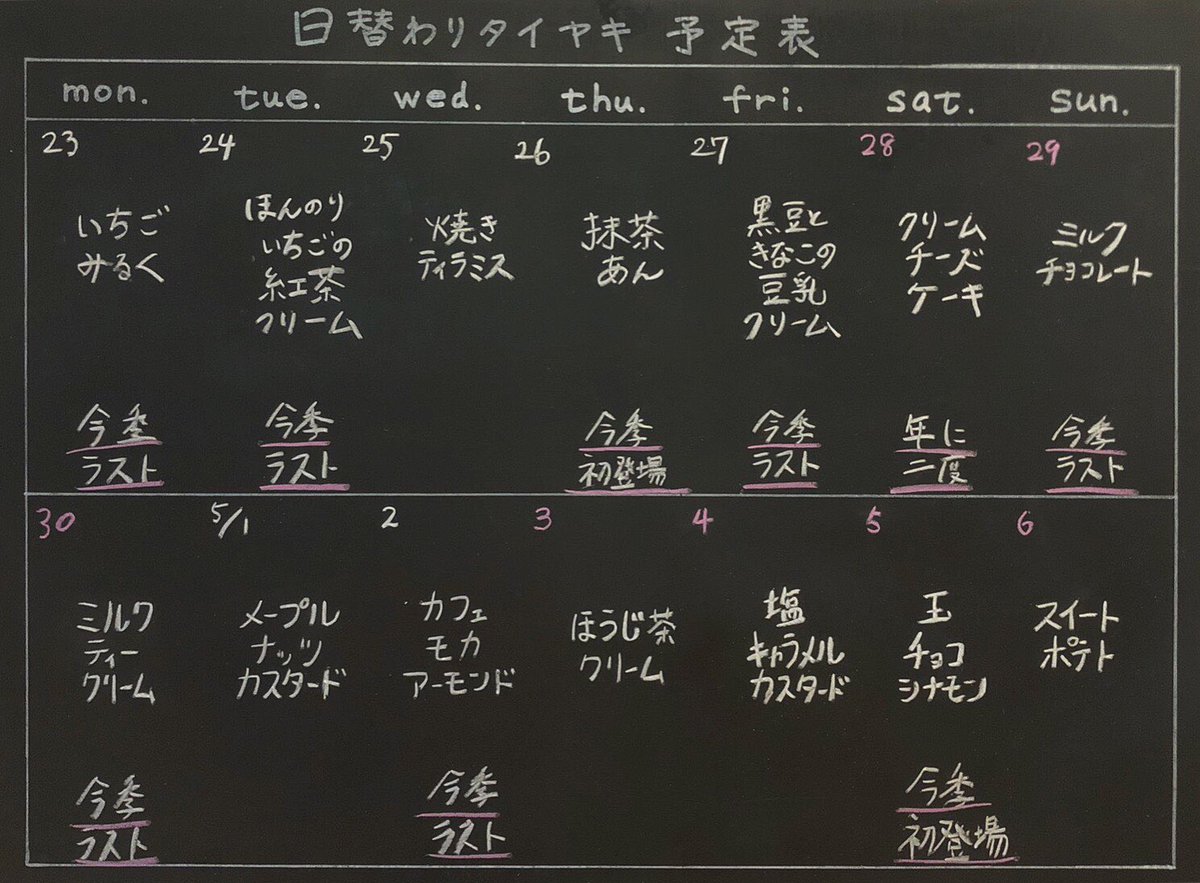 日替わりタイヤキ 予定表
mon. tue. wed. thu. fri. sat. sun.
23 24 25 26 27 28 29
いちご
みるく
ほんのり
いちごの
紅茶
クリーム
焼き
ティラミス
抹茶
あん
黒豆と
きなこの
豆乳
クリーム
クリーム
チーズ
ケーキ
ミルク
チョコレート
今季
ラスト
今季
ラスト
今季
初登場
今季
ラスト
年に
二度
今季
ラスト
30 5/1 2 3 4 5 6
ミルク
ティー
クリーム
メープル
ナッツ
カスタード
カフェ
モカ
アーモンド
ほうじ茶
クリーム
塩
キャラメル
カスタード
玉
チョコ
シナモン
スイート
ポテト
今季
ラスト
今季
ラスト
今季
初登場